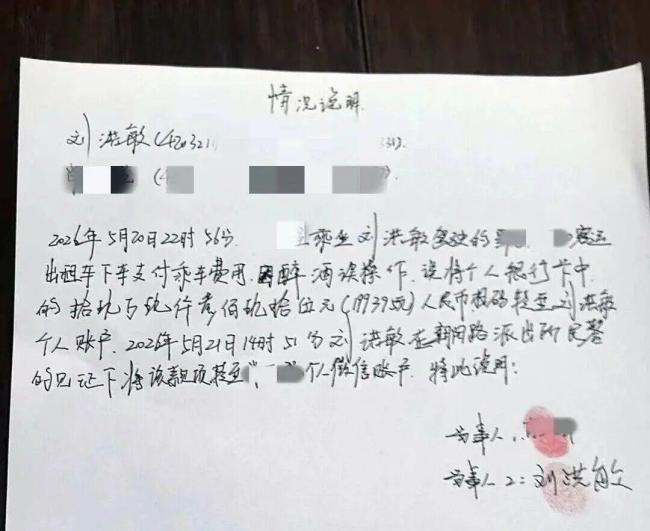 情况说明
刘洪敏(420321 331).
(4 )
2026年5月20日22时56分. 乘坐刘洪敏驾驶的 客运
出租车下车支付乘车费用, 因醉酒误操作, 误将个人银行卡中
的拾玖万玖仟叁佰玖拾伍元(199395元)人民币扫码转至刘洪敏
个人账户. 2026年5月21日14时51分刘洪敏在朝阳路派出所民警
的见证下将该款项转至 个人微信账户. 特此说明:
当事人1:
当事人2:刘洪敏